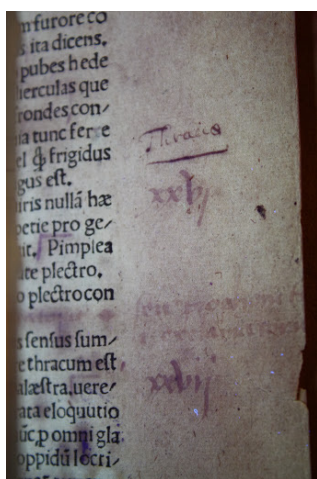 m furore co
s ita dicens.
pubes hede
ierculas que
rondes con/
ia tunc fer e
el ꝙ frigidus
gus est.
uris nullā hæ
petie pro ge/
it. Pimplea
ute plectro.
o plectro con
s sensus sum/
e thracum est
alæstra, uere/
ata eloquutio
ūc, p omni gla
oppidū locri/
Thracia
xxvj
xxvij